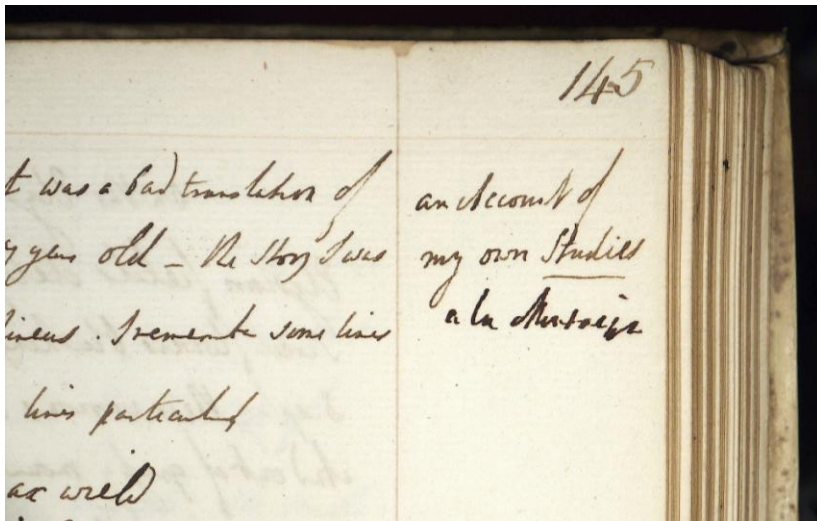 145
t was a bad translation of
y years old – the story I was
lineus. I remember some lines
lines particularly
ax wield
an Account of
my own Studies
a la